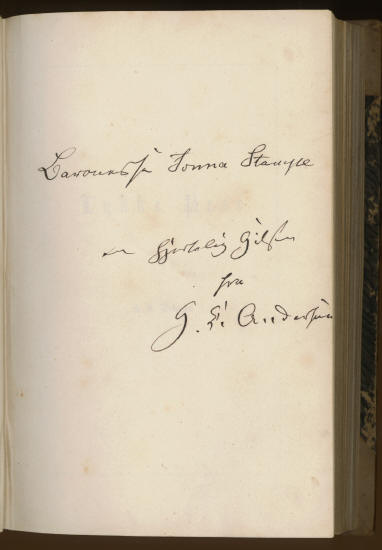 Baronesse Jonna Stampe
en hjertelig Hilsen
fra
H. C. Andersen